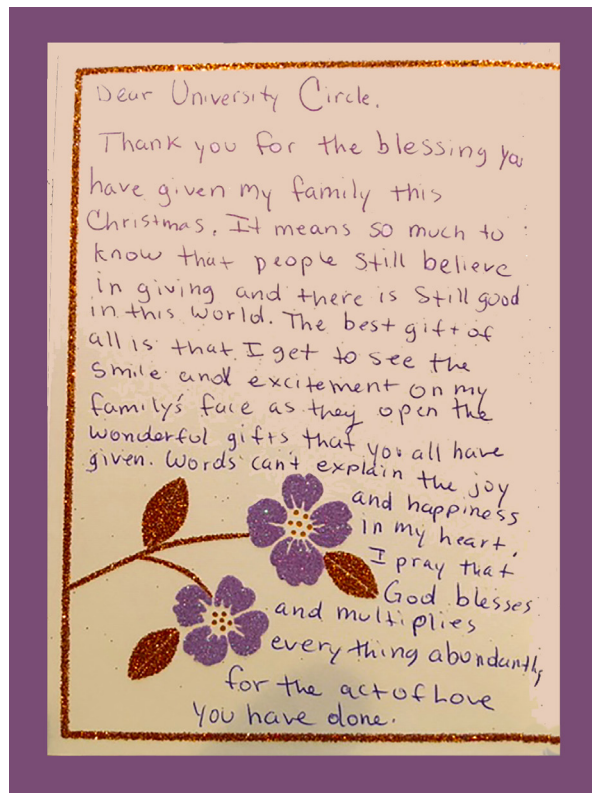 Dear University Circle.
Thank you for the blessing you
have given my family this
Christmas. It means so much to
know that people still believe
in giving and there is still good
in this world. The best gift of
all is that I get to see the
smile and excitement on my
family's face as they open the
wonderful gifts that you all have
given. Words can't explain the joy
and happiness
in my heart.
I pray that
God blesses
and multiplies
everything abundantly
for the act of Love
You have done.